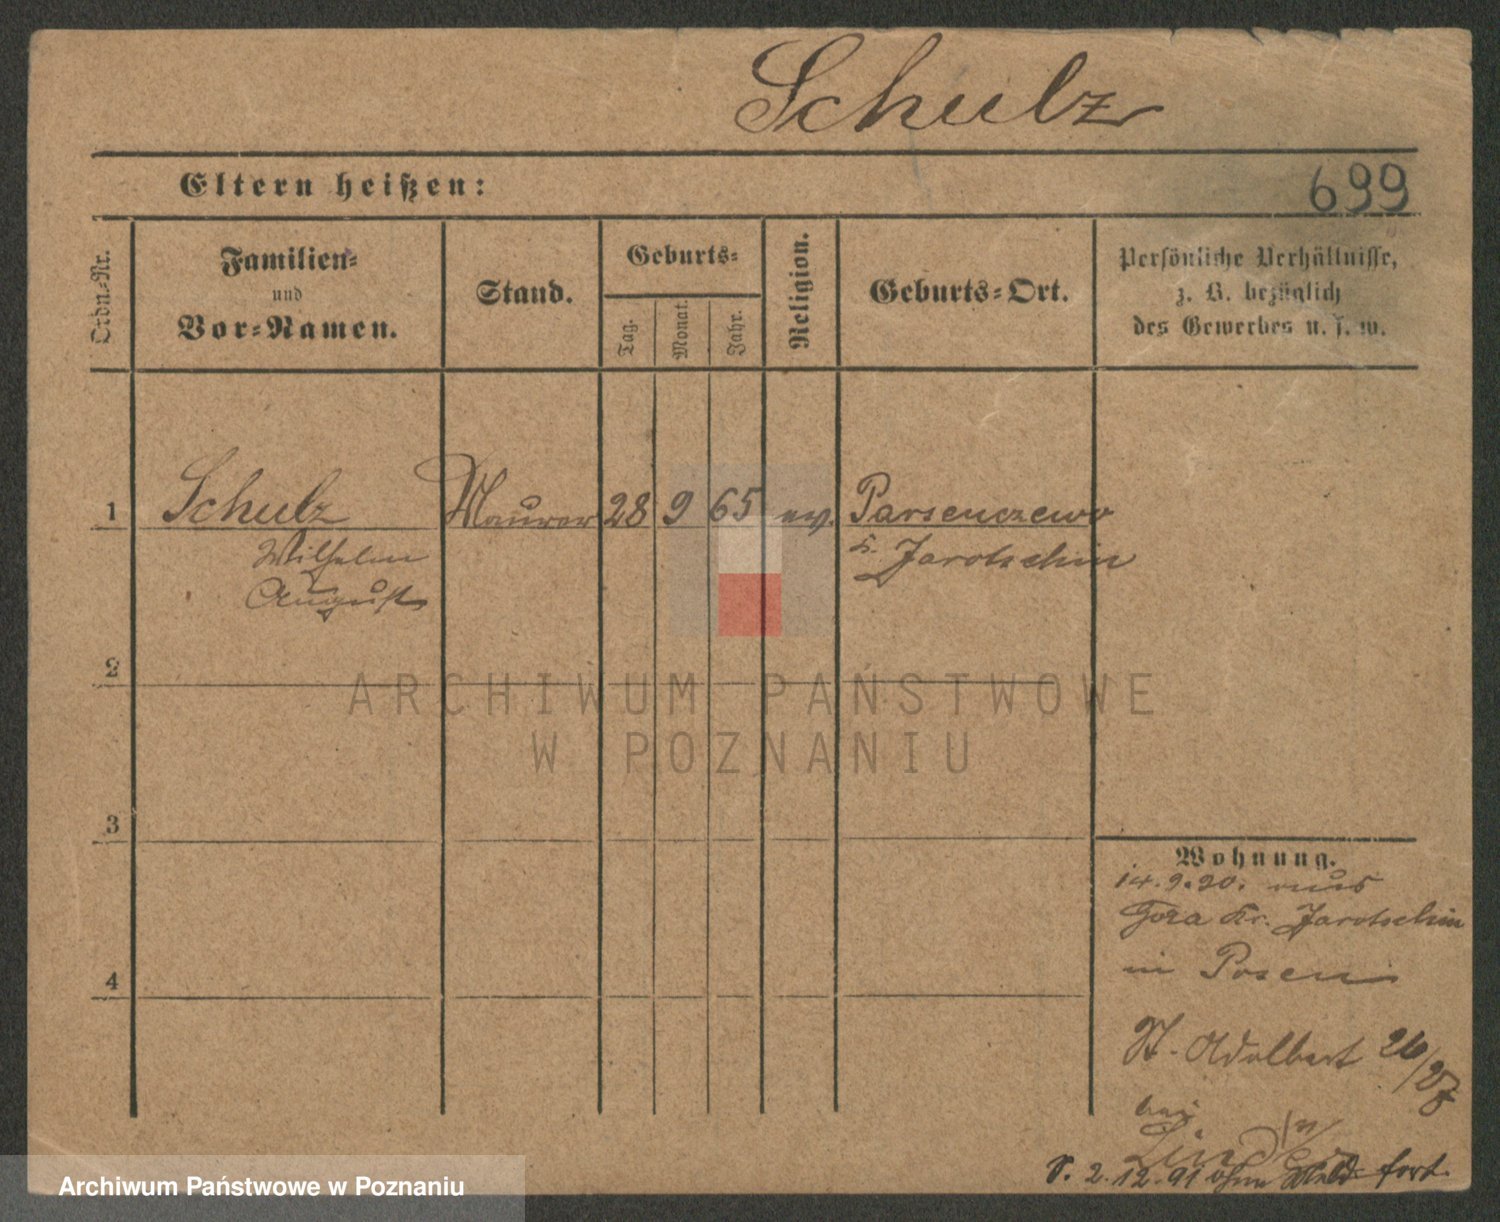 Schulz
Eltern heißen:
699
Ordn.-Nr.
Familien-
und
Vor-Namen.
Stand.
Geburts-
Tag.
Monat.
Jahr.
Religion.
Geburts-Ort.
Persönliche Verhältnisse,
z. B. bezüglich
des Gewerbes u. s. w.
1 Schulz Maurer 28 9 65 ev. Parsenczewo
Wilhelm K. Jarotschin
August
2
ARCHIWUM PAŃSTWOWE
W POZNANIU
3
Wohnung.
14.9.90. aus
Gora Kr. Jarotschin
in Posen
4
St. Adalbert 26/27
bei
S. 2.12.91 ohne Meld. fort
Archiwum Państwowe w Poznaniu